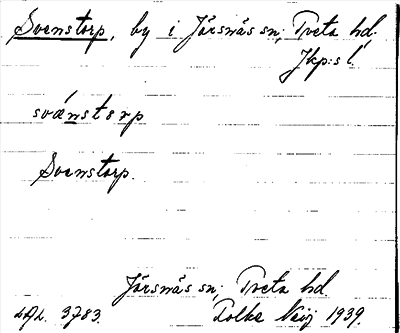 Svenstorp, by i Järsnäs sn, Tveta hd.
Jkp:s l.
svǽnstorp
Svenstorp.
Järsnäs sn, Tveta hd
LAL. 3783.
1939.